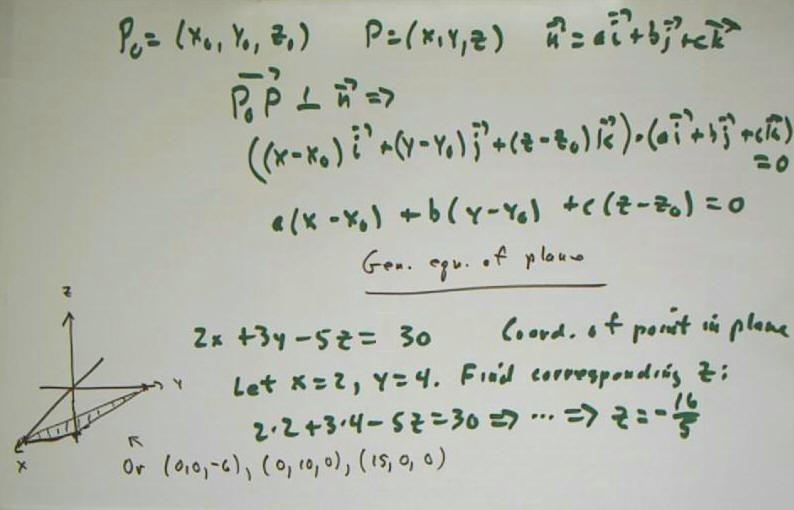 P₀ = (x₀, y₀, z₀) P = (x, y, z) n⃗ = ai⃗ + bj⃗ + ck⃗
P₀P⃗ ⊥ n⃗ ⇒
((x-x₀)i⃗ + (y-y₀)j⃗ + (z-z₀)k⃗)·(ai⃗ + bj⃗ + ck⃗)
= 0
a(x-x₀) + b(y-y₀) + c(z-z₀) = 0
Gen. equ. of plane
z
2x + 3y - 5z = 30 Coord. of point in plane
Let x = 2, y = 4. Find corresponding z:
y
2·2 + 3·4 - 5z = 30 ⇒ ... ⇒ z = -16/5
x
Or (0,0,-6), (0,10,0), (15,0,0)